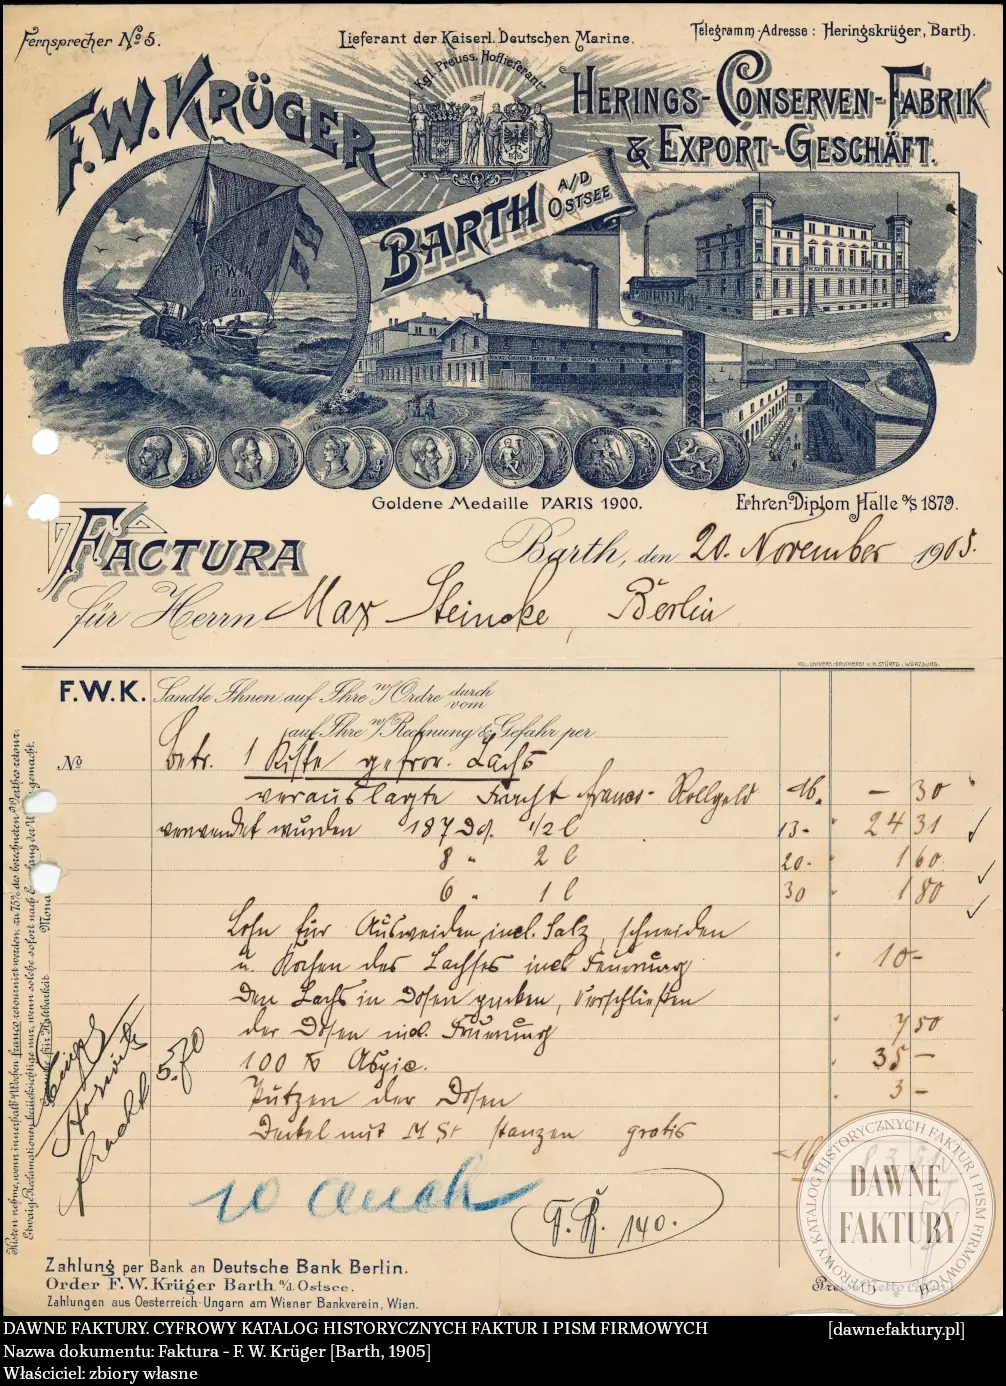 Fernsprecher No 5.
Lieferant der Kaiserl. Deutschen Marine.
Telegramm-Adresse: Heringskrüger, Barth.
Kgl. Preuss. Hoflieferant
F.W. KRÜGER
HERINGS-CONSERVEN-FABRIK
& EXPORT-GESCHÄFT.
BARTH A/D OSTSEE
F.W.K
120
Goldene Medaille PARIS 1900.
Ehren-Diplom Halle a/S 1879.
FACTURA
Barth, den 20. November 1905.
für Herrn Max Steincke, Berlin
KGL. UNIVERS.-DRUCKEREI v. H. STÜRTZ, WÜRZBURG.
F.W.K. Sandte Ihnen auf Ihre w/Ordre durch vom
auf Ihre w/Rechnung & Gefahr per
No
betr. 1 Kiste gefror. Lachs
verauslagte Fracht franco- Rollgeld 16. – 30
verwendet wurden 187 Ds. 1/2 l 13- 24 31
8 " 2 l 20- 1 60
6 " 1 l 30 1 80
Lohn für Ausweiden incl. Salz, schneiden
u. Kochen des Lachses incl Feuerung 10 -
den Lachs in Dosen packen, Verschließen
der Dosen incl. Feuerung 7 50
100 Aspic. 35 -
Putzen der Dosen 3 -
Deckel mit M St stanzen gratis
Fracht 5.70
140.
Kisten nehme, wenn innerhalb 4 Wochen franco retournirt werden, zu 75% des berechneten Werthes retour.
Etwaige Reclamationen berücksichtige nur, wenn solche sofort nach Empfang der Waare gemacht.
Zahlung per Bank an Deutsche Bank Berlin.
Order F.W. Krüger Barth a/d. Ostsee.
Zahlungen aus Oesterreich-Ungarn am Wiener Bankverein, Wien.
CYFROWY KATALOG HISTORYCZNYCH FAKTUR I PISM FIRMOWYCH
DAWNE
FAKTURY
DAWNE FAKTURY. CYFROWY KATALOG HISTORYCZNYCH FAKTUR I PISM FIRMOWYCH [dawnefaktury.pl]
Nazwa dokumentu: Faktura - F. W. Krüger [Barth, 1905]
Właściciel: zbiory własne